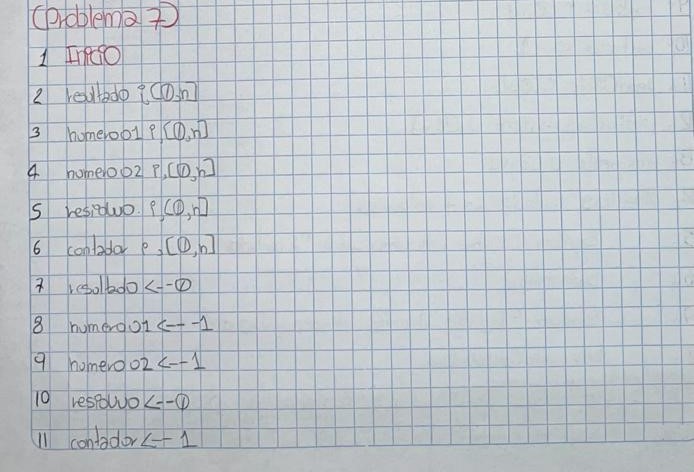 (Problema 7)
1 Inicio
2 resultado ?,[0,n]
3 numero01 ?,[0,n]
4 numero02 ?,[0,n]
5 residuo ?,[0,n]
6 contador ?,[0,n]
7 resultado <--0
8 numero01 <-- -1
9 numero02 <--1
10 residuo <--0
11 contador <-- 1